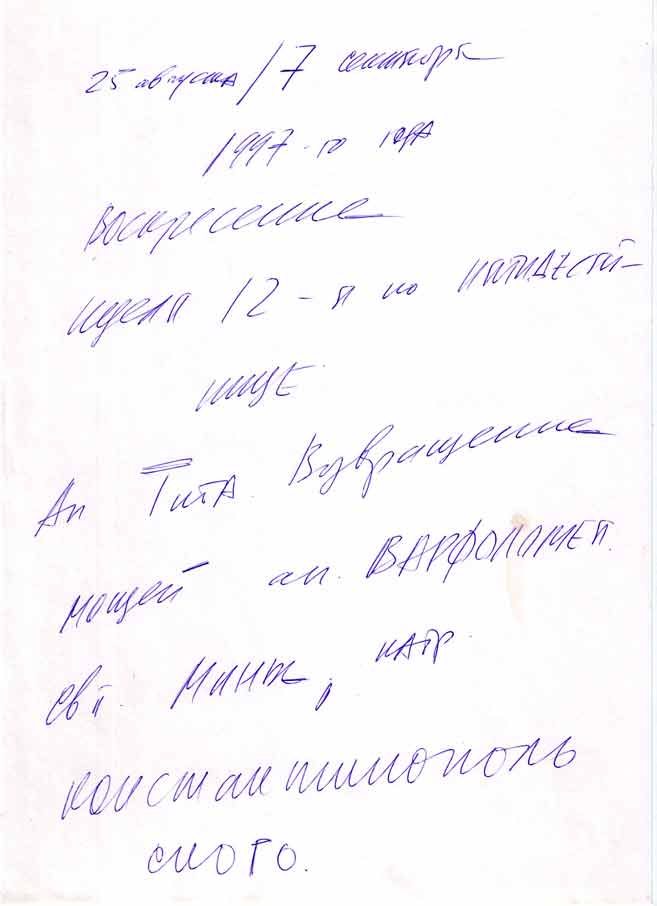 25 августа / 7 сентября
1997-го года
Воскресение
неделя 12-я по пятидесят-
нице.
Ап. Тита. Возвращение
мощей ап. ВАРФОЛОМЕЯ.
Свт. Мины, патр.
константинополь
ского.